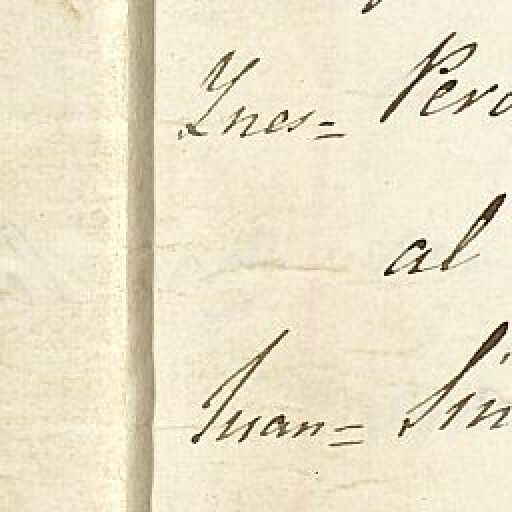 Ynes= Pero
al
Juan= Sin